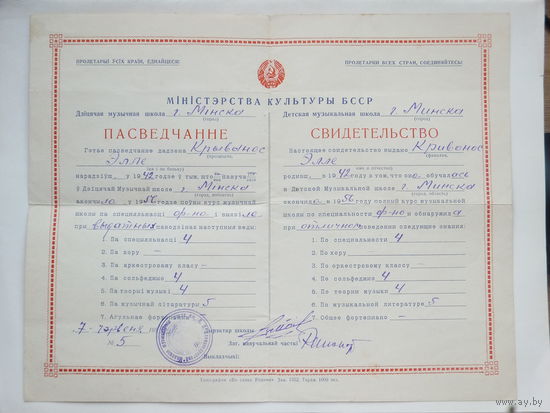 ПРОЛЕТАРЫІ ЎСІХ КРАІН, ЕДНАЙЦЕСЯ!
ПРОЛЕТАРИИ ВСЕХ СТРАН, СОЕДИНЯЙТЕСЬ!
МІНІСТЭРСТВА КУЛЬТУРЫ БССР
Дзіцячая музычная школа г. Мінска
(горад)
ПАСВЕДЧАННЕ
Гэтае пасведчанне дадзена Крываноc
(прозвішча,
Элле
імя і па бацьку)
нарадзіў у 1942 годзе ў тым, што
ў Дзіцячай Музычнай школе г. Мінска
(горад, вобласць)
скончыла ў 1956 годзе поўны курс музычнай
школы па спецыяльнасці ф-но і выявіла
пры выдатных паводзінах наступныя веды:
1. Па спецыяльнасці 4
2. Па хору —
3. Па аркестроваму класу —
4. Па сольфеджыо 4
5. Па тэорыі музыкі 4
6. Па музычнай літаратуры 5
7. Агульнае фортэпіяна
7 чэрвеня
№ 5
Детская музыкальная школа г. Минска
(город)
СВИДЕТЕЛЬСТВО
Настоящее свидетельство выдано Кривонос
(фамилия,
Элле
имя и отчество)
родив. в 1942 году в том, что она обучалась
в Детской Музыкальной школе г. Минска
(город, область)
окончила в 1956 году полный курс музыкальной
школы по специальности ф-но и обнаружила
при отличном поведении следующие знания:
1. По специальности 4
2. По хору
3. По оркестровому классу —
4. По сольфеджио 4
5. По теории музыки 4
6. По музыкальной литературе 5
7. Общее фортепиано —
Дырэктар школы
Заг. навучальнай часткі
Выкладчыкі:
www.ay.by